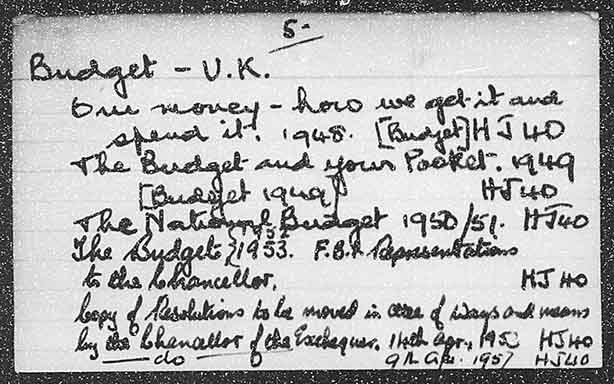 5.
Budget - U.K.
Our money - how we get it and
spend it. 1948. [Budget] HJ40
The Budget and your Pocket. 1949
[Budget 1949] HJ40
The National Budget 1950/51. HJ40
The Budget, 1953. F.B.I. Representations
to the Chancellor. HJ40
Copy of Resolutions to be moved in of ways and means
by the Chancellor of the Exchequer. 14th Apr., 1953 HJ40
— do — 9th Apr. 1957 HJ40